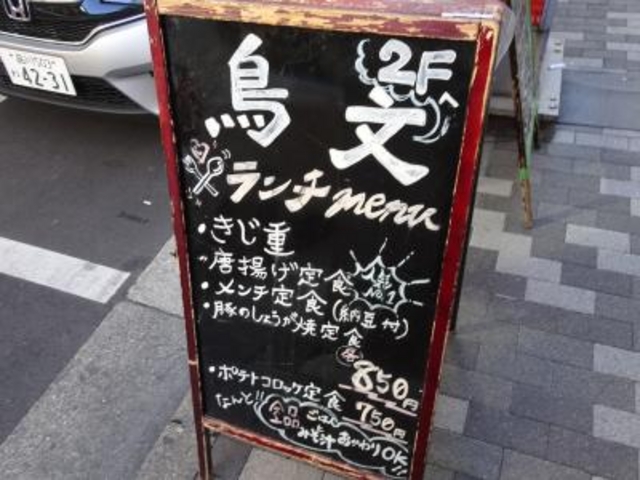 2Fへ
鳥文
ランチmenu
・きじ重
・唐揚げ定食 人気No.1
・メンチ定食(納豆付)
・豚のしょうが焼定食
各850円
・ポテトコロッケ定食 750円
なんと!! 全品 ごはん みそ汁 おかわりOK!!
42-31